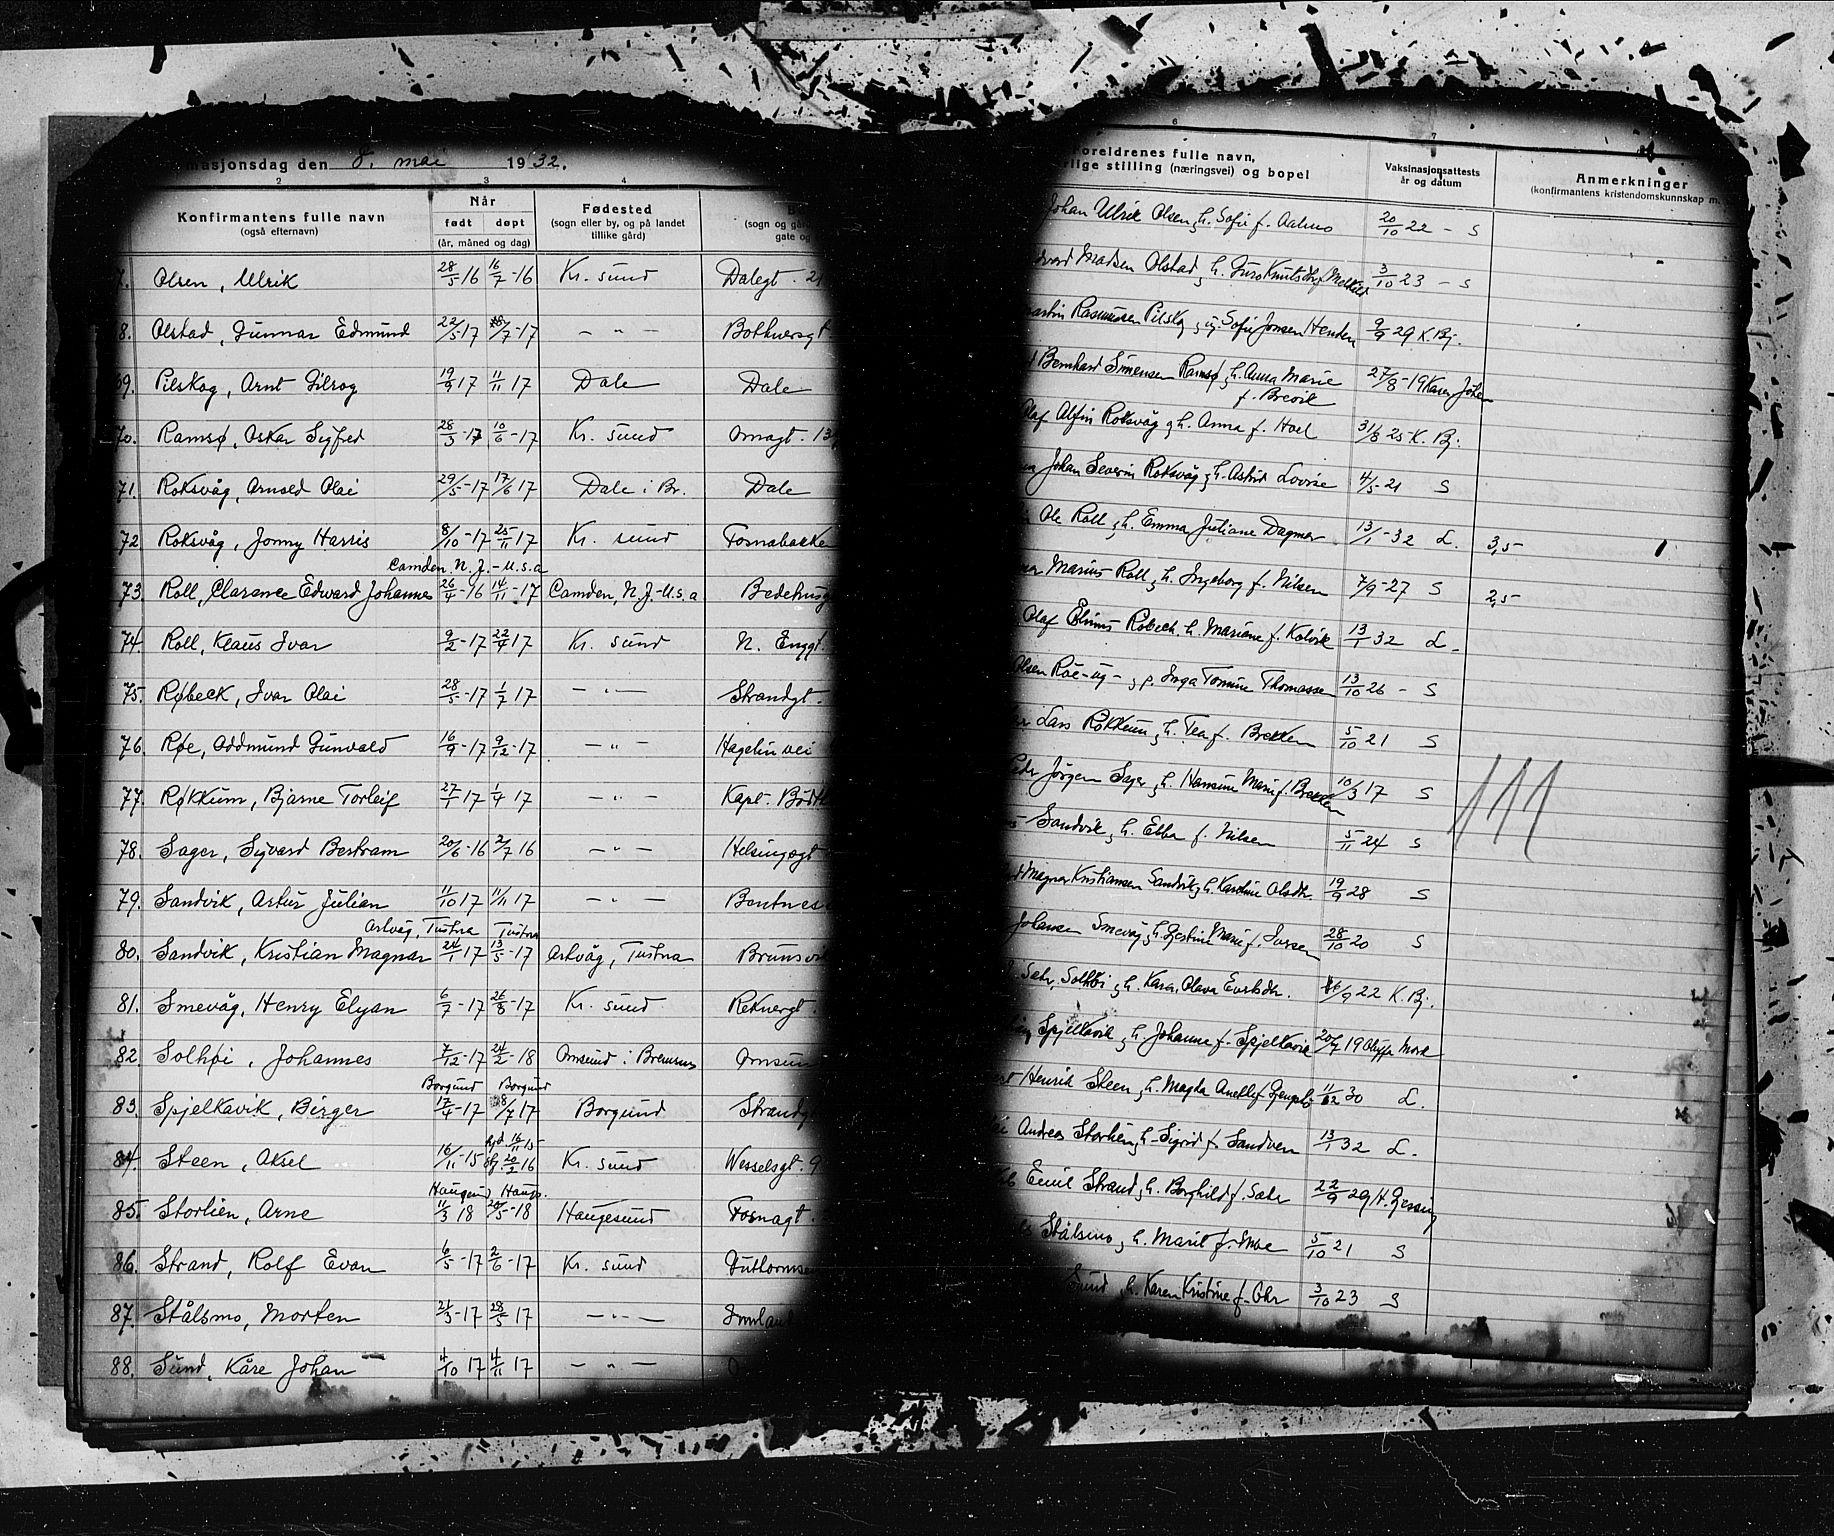 masjonsdag den 8. mai 1932.
2 3 4
Konfirmantens fulle navn
(også efternavn)
Når
født døpt
(år, måned og dag)
Fødested
(sogn eller by, og på landet
tillike gård)
(sogn og går
gate og
7. Olsen, Ulrik 28/5 16 16/7 -16 Kr. sund Dalegt. 21
8. Olstad, Gunnar Edmund 22/5-17 /7-17 — " — Bothnersgt.
69. Pilskog, Arnt Gilroy 19/9 17 11/11 17 Dale Dale
70. Ramsø, Oskar Sigfred 28/3-17 10/6-17 Kr. sund Omagt. 13
71. Roksvåg, Arnold Olai 29/5-17 17/6 17 Dale i Br. Dale
72 Roksvåg, Jonny Harris 8/10-17 25/11 17 Kr. sund Fosnabakken
Camden N. J. - U.S.a
73. Roll, Clarence Edward Johannes 26/4-16 14/11-17 Camden, N. J.-U.s.a Bedehusg
74. Roll, Klaus Ivar 9/2-17 22/4 17 Kr. sund N. Enggt.
75. Røbeck, Ivar Olai 28/5-17 1/7 17 — " — Strandgt.
76. Røe, Oddmund Gunvald 16/9-17 9/12-17 — " — Hagelin vei
77. Røkkum, Bjarne Torleif 27/1 17 1/4 17 — " — Kapt. Bødt
78. Sager, Sigvard Bertram 20/6-16 2/7 16 — " — Helsingøgt
79. Sandvik, Artur Julian 11/10 17 11/11 17 — " — Bentnes
Artvåg, Tustna Tustna
80. Sandvik, Kristian Magnar 24/1 17 13/5-17 Artvåg, Tustna Brunsvi
81. Smevåg, Henry Elyan 6/7-17 26/8-17 Kr. sund Reknesgt.
82. Solhøi, Johannes 7/12-17 24/2-18 Omsund i Bremsnes Omsun
Borgund Borgund
83. Spjelkavik, Birger 17/4-17 8/7 17 Borgund Strandg
hjd. 16/11 15
84. Steen, Aksel 16/11-15 20/2 16 Kr. sund Wesselsgt. 9
Haugesund Hauges.
85. Storlien, Arne 11/3 18 20/5-18 Haugesund Fosnagt.
86. Strand, Rolf Evan 6/5-17 2/6-17 Kr. sund Guttormse
87. Stålsmo, Morten 24/3-17 28/5 17 — " — Innlan
88. Sund, Kåre Johan 4/10 17 4/11 17 — " —
6 7
Foreldrenes fulle navn,
rlige stilling (næringsvei) og bopel
Vaksinasjonsattests
år og datum
Anmerkninger
(konfirmantens kristendomskunnskap m.
Johan Ulrik Olsen, h. Sofie f. Aahus 20/10 22 - S
dvard Madsen Olstad, h. Guro Knutsdtr f Melkild 3/10 23 - S
artin Rasmussen Pilskog, ug. Sofie Jonsen Henden 9/9 29 K. Bj.
Bernhard Simensen Ramsø, h. Anna Marie
f. Brevik 27/8-19 Karen Johan
Olaf Alfin Roksvåg, h. Anna f. Hoel 31/8 25-K. Bj.
Johan Severin Roksvåg, h. Astrid Lovise 4/5-21 S
Ole Roll, h. Emma Juliane Dagmar 13/1-32 L. 3,5
Marius Roll, h. Ingeborg f. Nilsen 7/9-27 S 2,5
Olaf Elinus Røbech h. Mariane f. Kolvik 13/1 32 L-
Olsen Røe-ug- g p. Inga Tomine Thomasse 13/10 26 - S
Lars Røkkum, h. Tea f. Brekken 5/10 21 S
Peder Jörgen Sager, h. Hansine Marie f. Brekken 10/3 17 S
Sandvik, h. Ebba f. Nilsen 5/11 24 S
111
Magnar Kristiansen Sandvik, h. Karoline Olsdtr. 19/9 28 S
Johansen Smevåg, h. Gjertine Marie f. Iverse 28/10 20 S
Sæter, Solhøi, h. Karen Olava Evertsdtr. /9 22 K. Bj.
Spjelkavik, h. Johanne f. Spjelkavik 20/7 19
Henrik Steen, h. Magda 30 L.
Andreas Storlien, h. Sigrid f. Sandven 13/1 32 L.
Emil Strand, h. Borghild f. Sæter 22/9 29 H. Gjessing
Stålsmo, h. Marit f. Moe 5/10 21 S
Sund, h. Karen Kristine f. Ohr 3/10 23 S